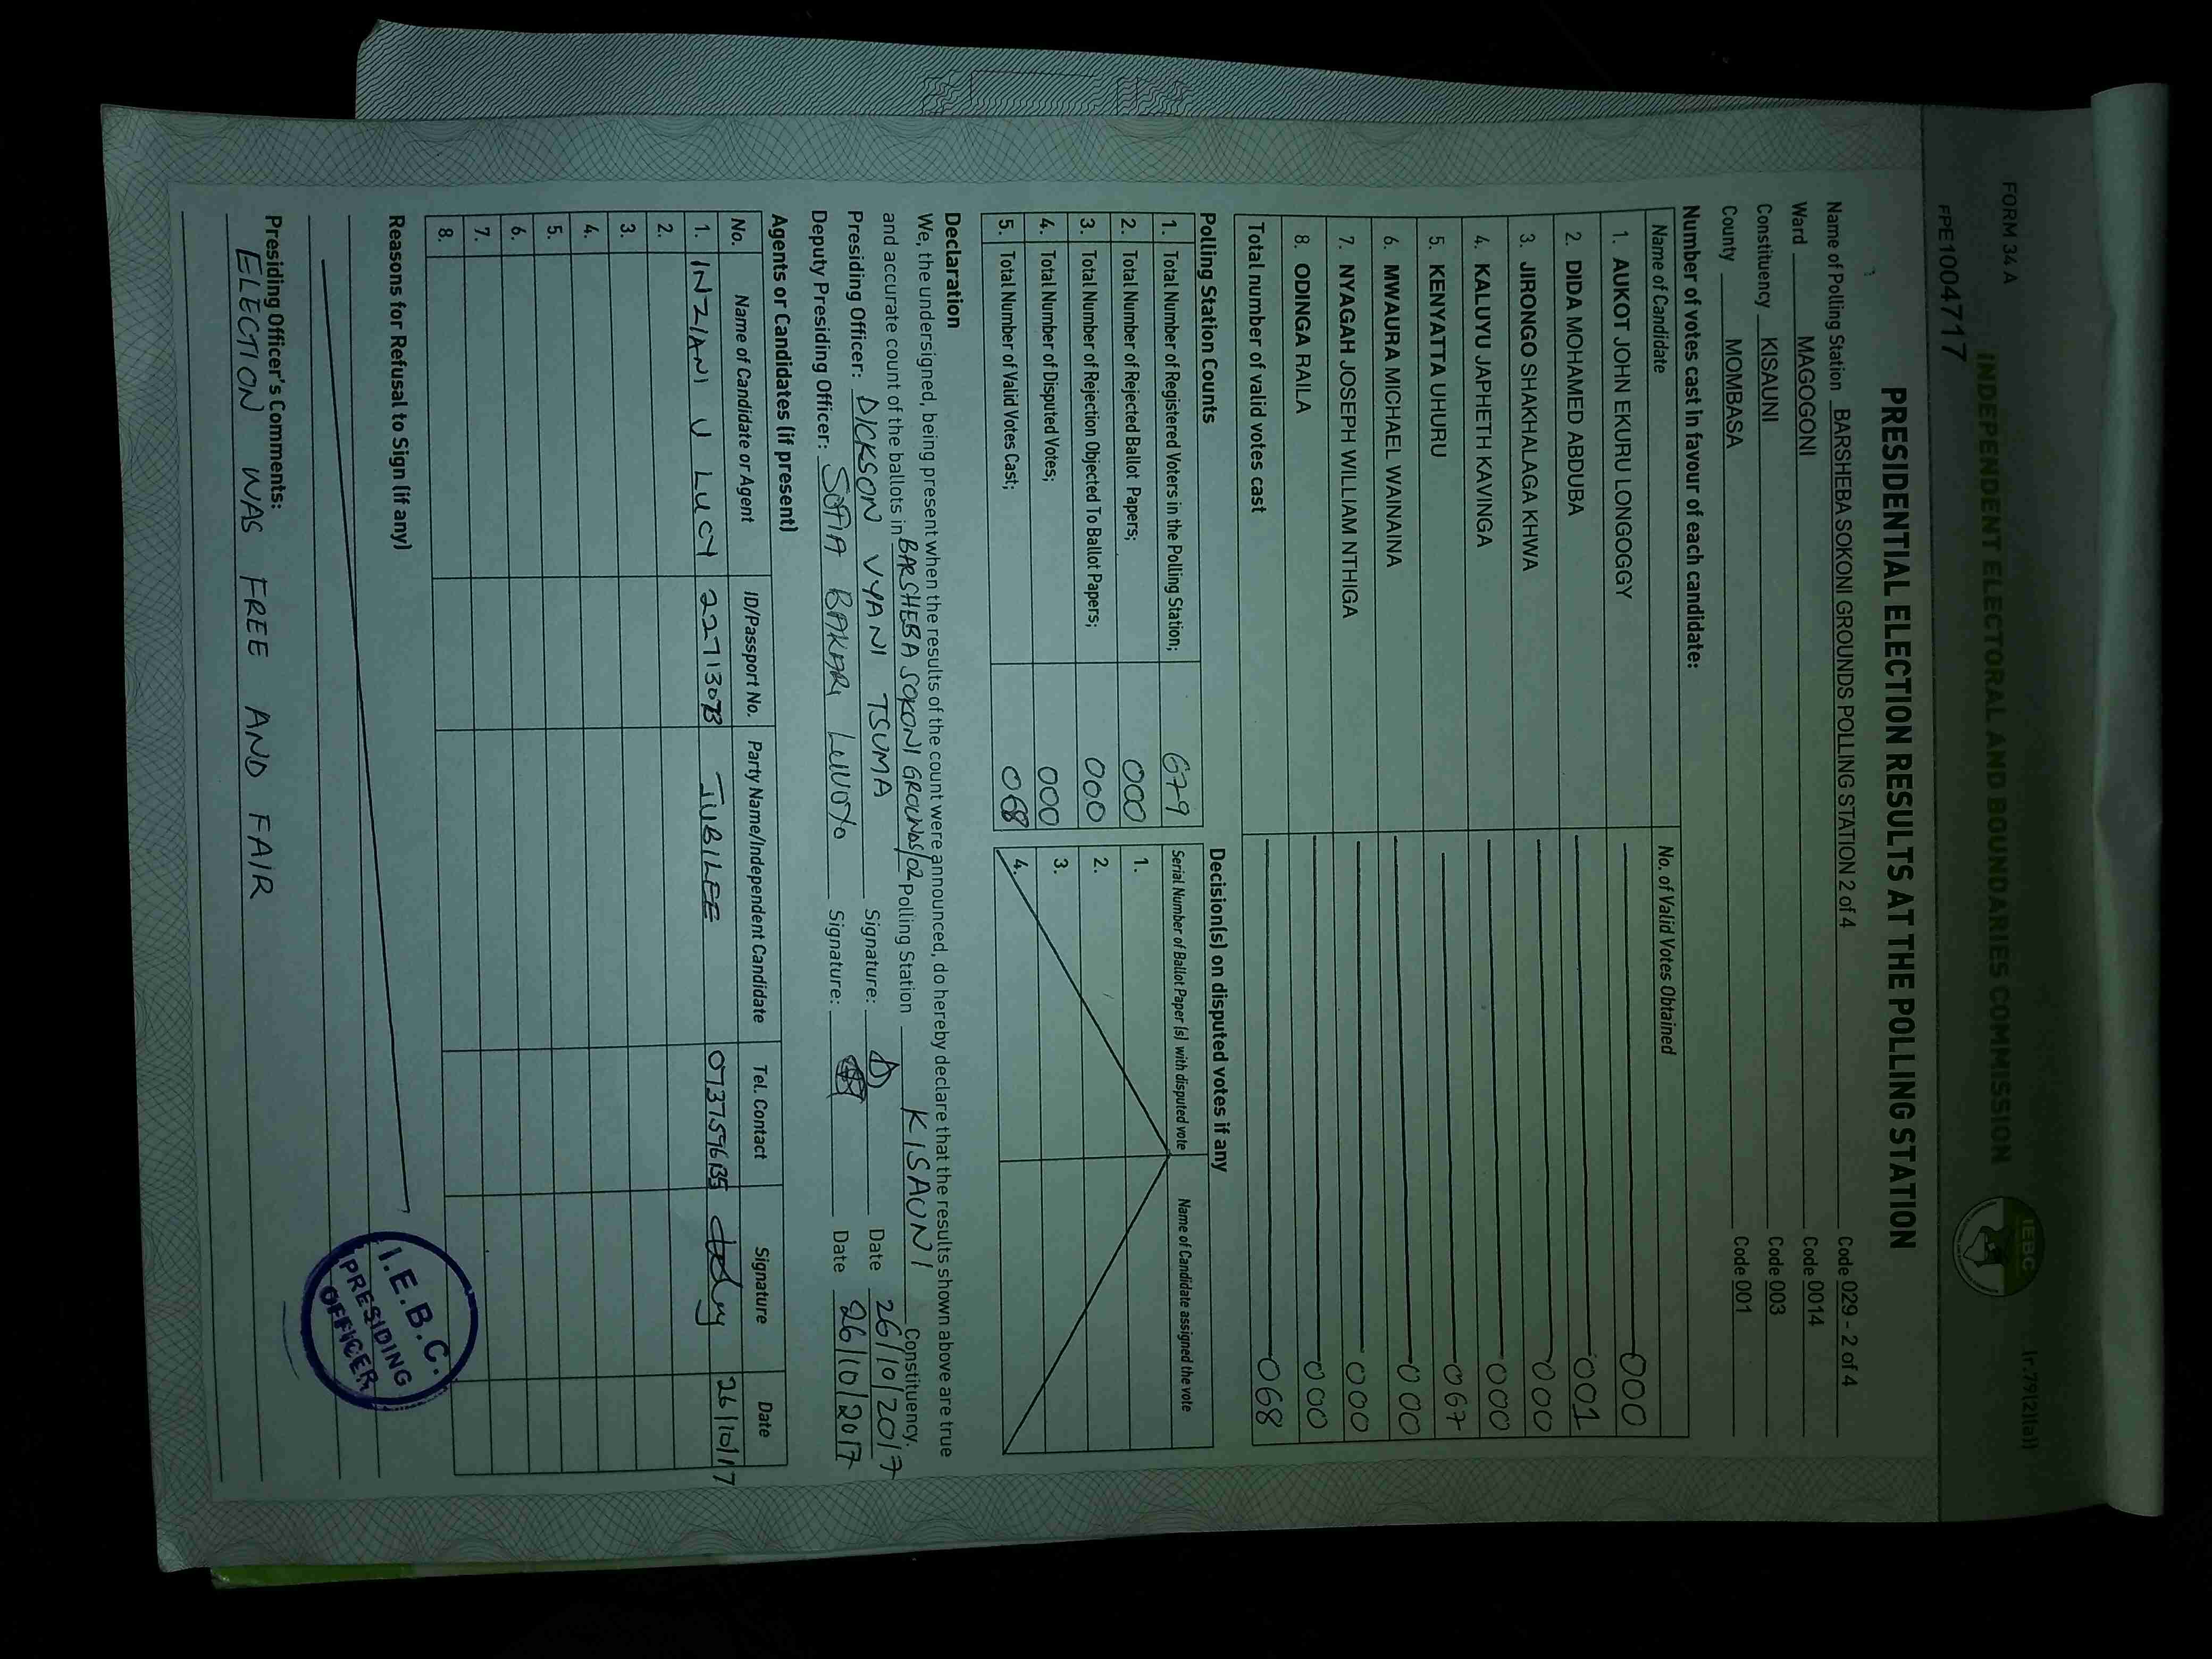 FORM 34 A
INDEPENDENT ELECTORAL AND BOUNDARIES COMMISSION
IEBC
(r.79(2)(a))
FPE1004717
PRESIDENTIAL ELECTION RESULTS AT THE POLLING STATION
Name of Polling Station BARSHEBA SOKONI GROUNDS POLLING STATION 2 of 4 Code 029 - 2 of 4
Ward MAGOGONI Code 0014
Constituency KISAUNI Code 003
County MOMBASA Code 001
Number of votes cast in favour of each candidate:
Name of Candidate No. of Valid Votes Obtained
1. AUKOT JOHN EKURU LONGOGGY 000
2. DIDA MOHAMED ABDUBA 001
3. JIRONGO SHAKHALAGA KHWA 000
4. KALUYU JAPHETH KAVINGA 000
5. KENYATTA UHURU 067
6. MWAURA MICHAEL WAINAINA 000
7. NYAGAH JOSEPH WILLIAM NTHIGA 000
8. ODINGA RAILA 000
Total number of valid votes cast 068
Polling Station Counts
1. Total Number of Registered Voters in the Polling Station; 679
2. Total Number of Rejected Ballot Papers; 000
3. Total Number of Rejection Objected To Ballot Papers; 000
4. Total Number of Disputed Votes; 000
5. Total Number of Valid Votes Cast; 068
Decision(s) on disputed votes if any
Serial Number of Ballot Paper (s) with disputed vote Name of Candidate assigned the vote
1.
2.
3.
4.
Declaration
We, the undersigned, being present when the results of the count were announced, do hereby declare that the results shown above are true
and accurate count of the ballots in BARSHEBA SOKONI GROUNDS/02 Polling Station KISAUNI Constituency.
Presiding Officer: DICKSON VYANI TSUMA Signature: Date 26/10/2017
Deputy Presiding Officer: SOFIA BAKARI Signature: Date 26/10/2017
Agents or Candidates (if present)
No. Name of Candidate or Agent ID/Passport No. Party Name/Independent Candidate Tel. Contact Signature Date
1. INZIANI U LUCY JUBILEE 26/10/17
2.
3.
4.
5.
6.
7.
8.
Reasons for Refusal to Sign (if any)
I.E.B.C.
PRESIDING
OFFICER
Presiding Officer's Comments:
ELECTION WAS FREE AND FAIR